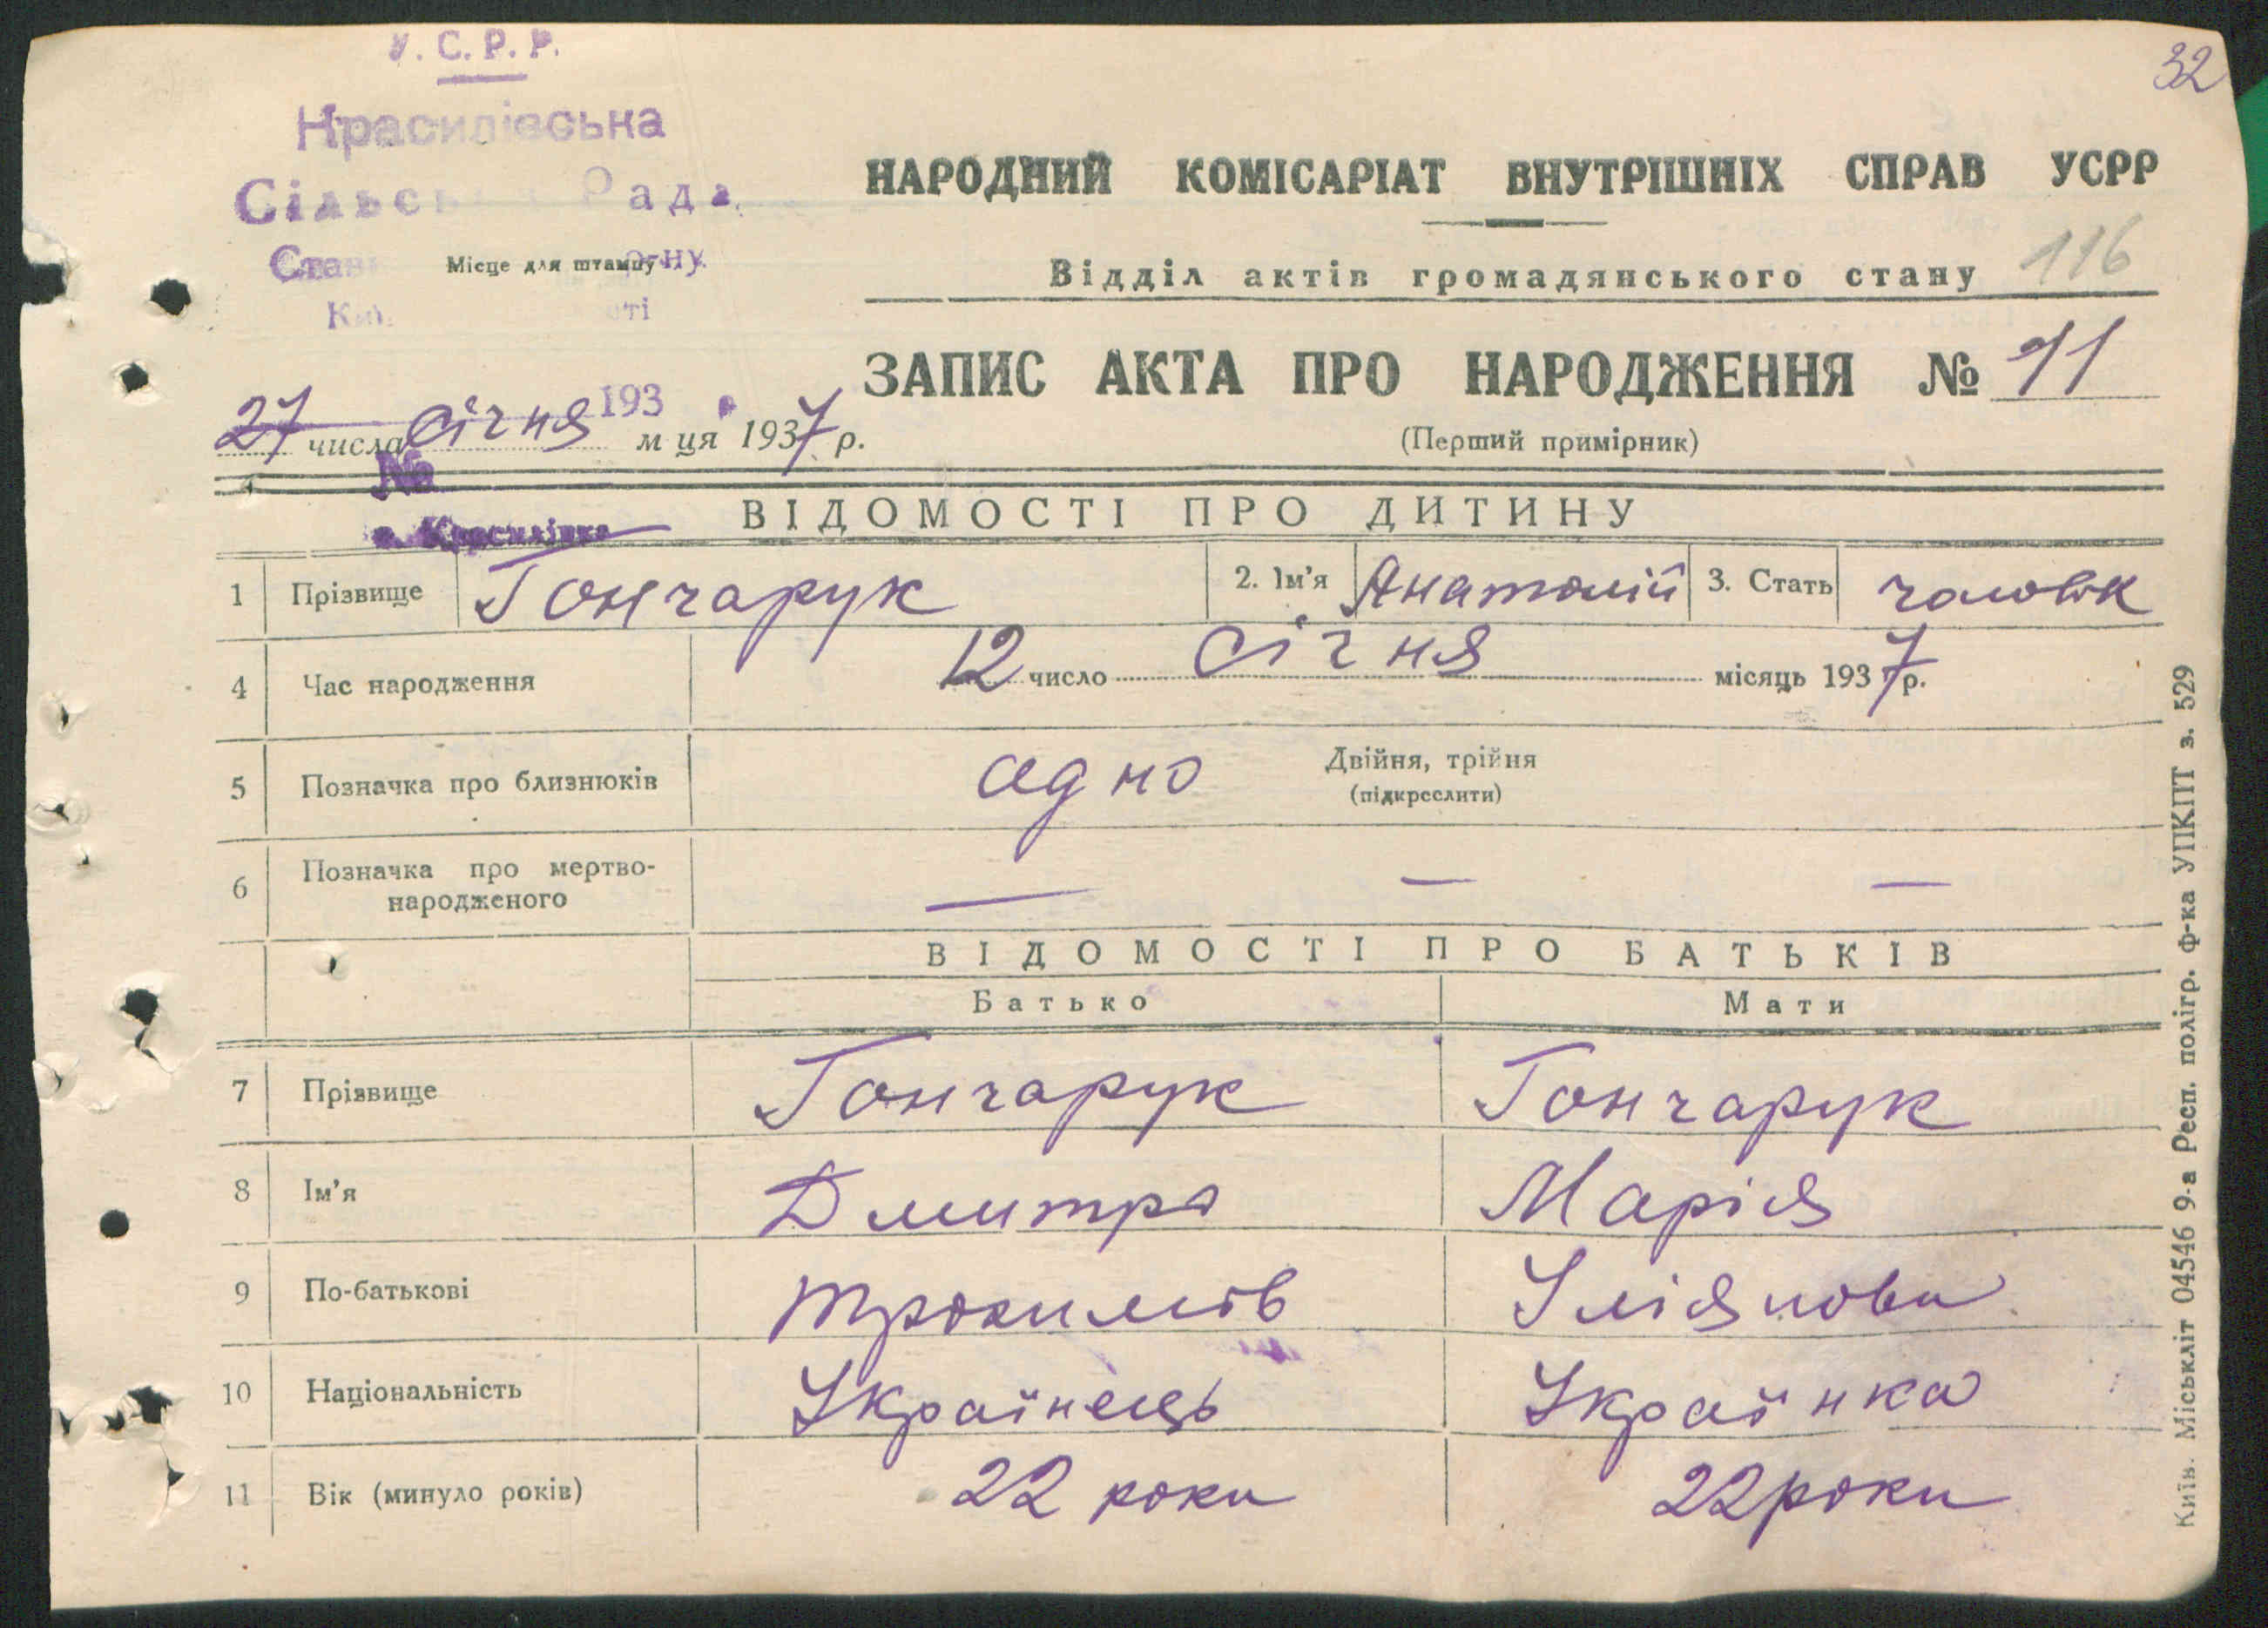 У. С. Р. Р.
32
Красилівська
Сільська Рада
НАРОДНИЙ КОМІСАРІАТ ВНУТРІШНІХ СПРАВ УСРР
Місце для штампу
Відділ актів громадянського стану 116
ЗАПИС АКТА ПРО НАРОДЖЕННЯ № 11
193
27 числа січня м ця 1937 р.
(Перший примірник)
№
с. Красилівка
ВІДОМОСТІ ПРО ДИТИНУ
1 Прізвище Гончарук 2. Ім'я Анатолій 3. Стать чоловік
4 Час народження 12 число січня місяць 1937 р.
5 Позначка про близнюків одно Двійня, трійня
(підкреслити)
6 Позначка про мертво-
народженого — — —
ВІДОМОСТІ ПРО БАТЬКІВ
Батько Мати
7 Прізвище Гончарук Гончарук
8 Ім'я Дмитро Марія
9 По-батькові Трохимов Іліянова
10 Національність Українець Українка
11 Вік (минуло років) 22 роки 22 роки
Київ. Міськліт 04546 9-а Респ. полігр. ф-ка УПКПТ з. 529